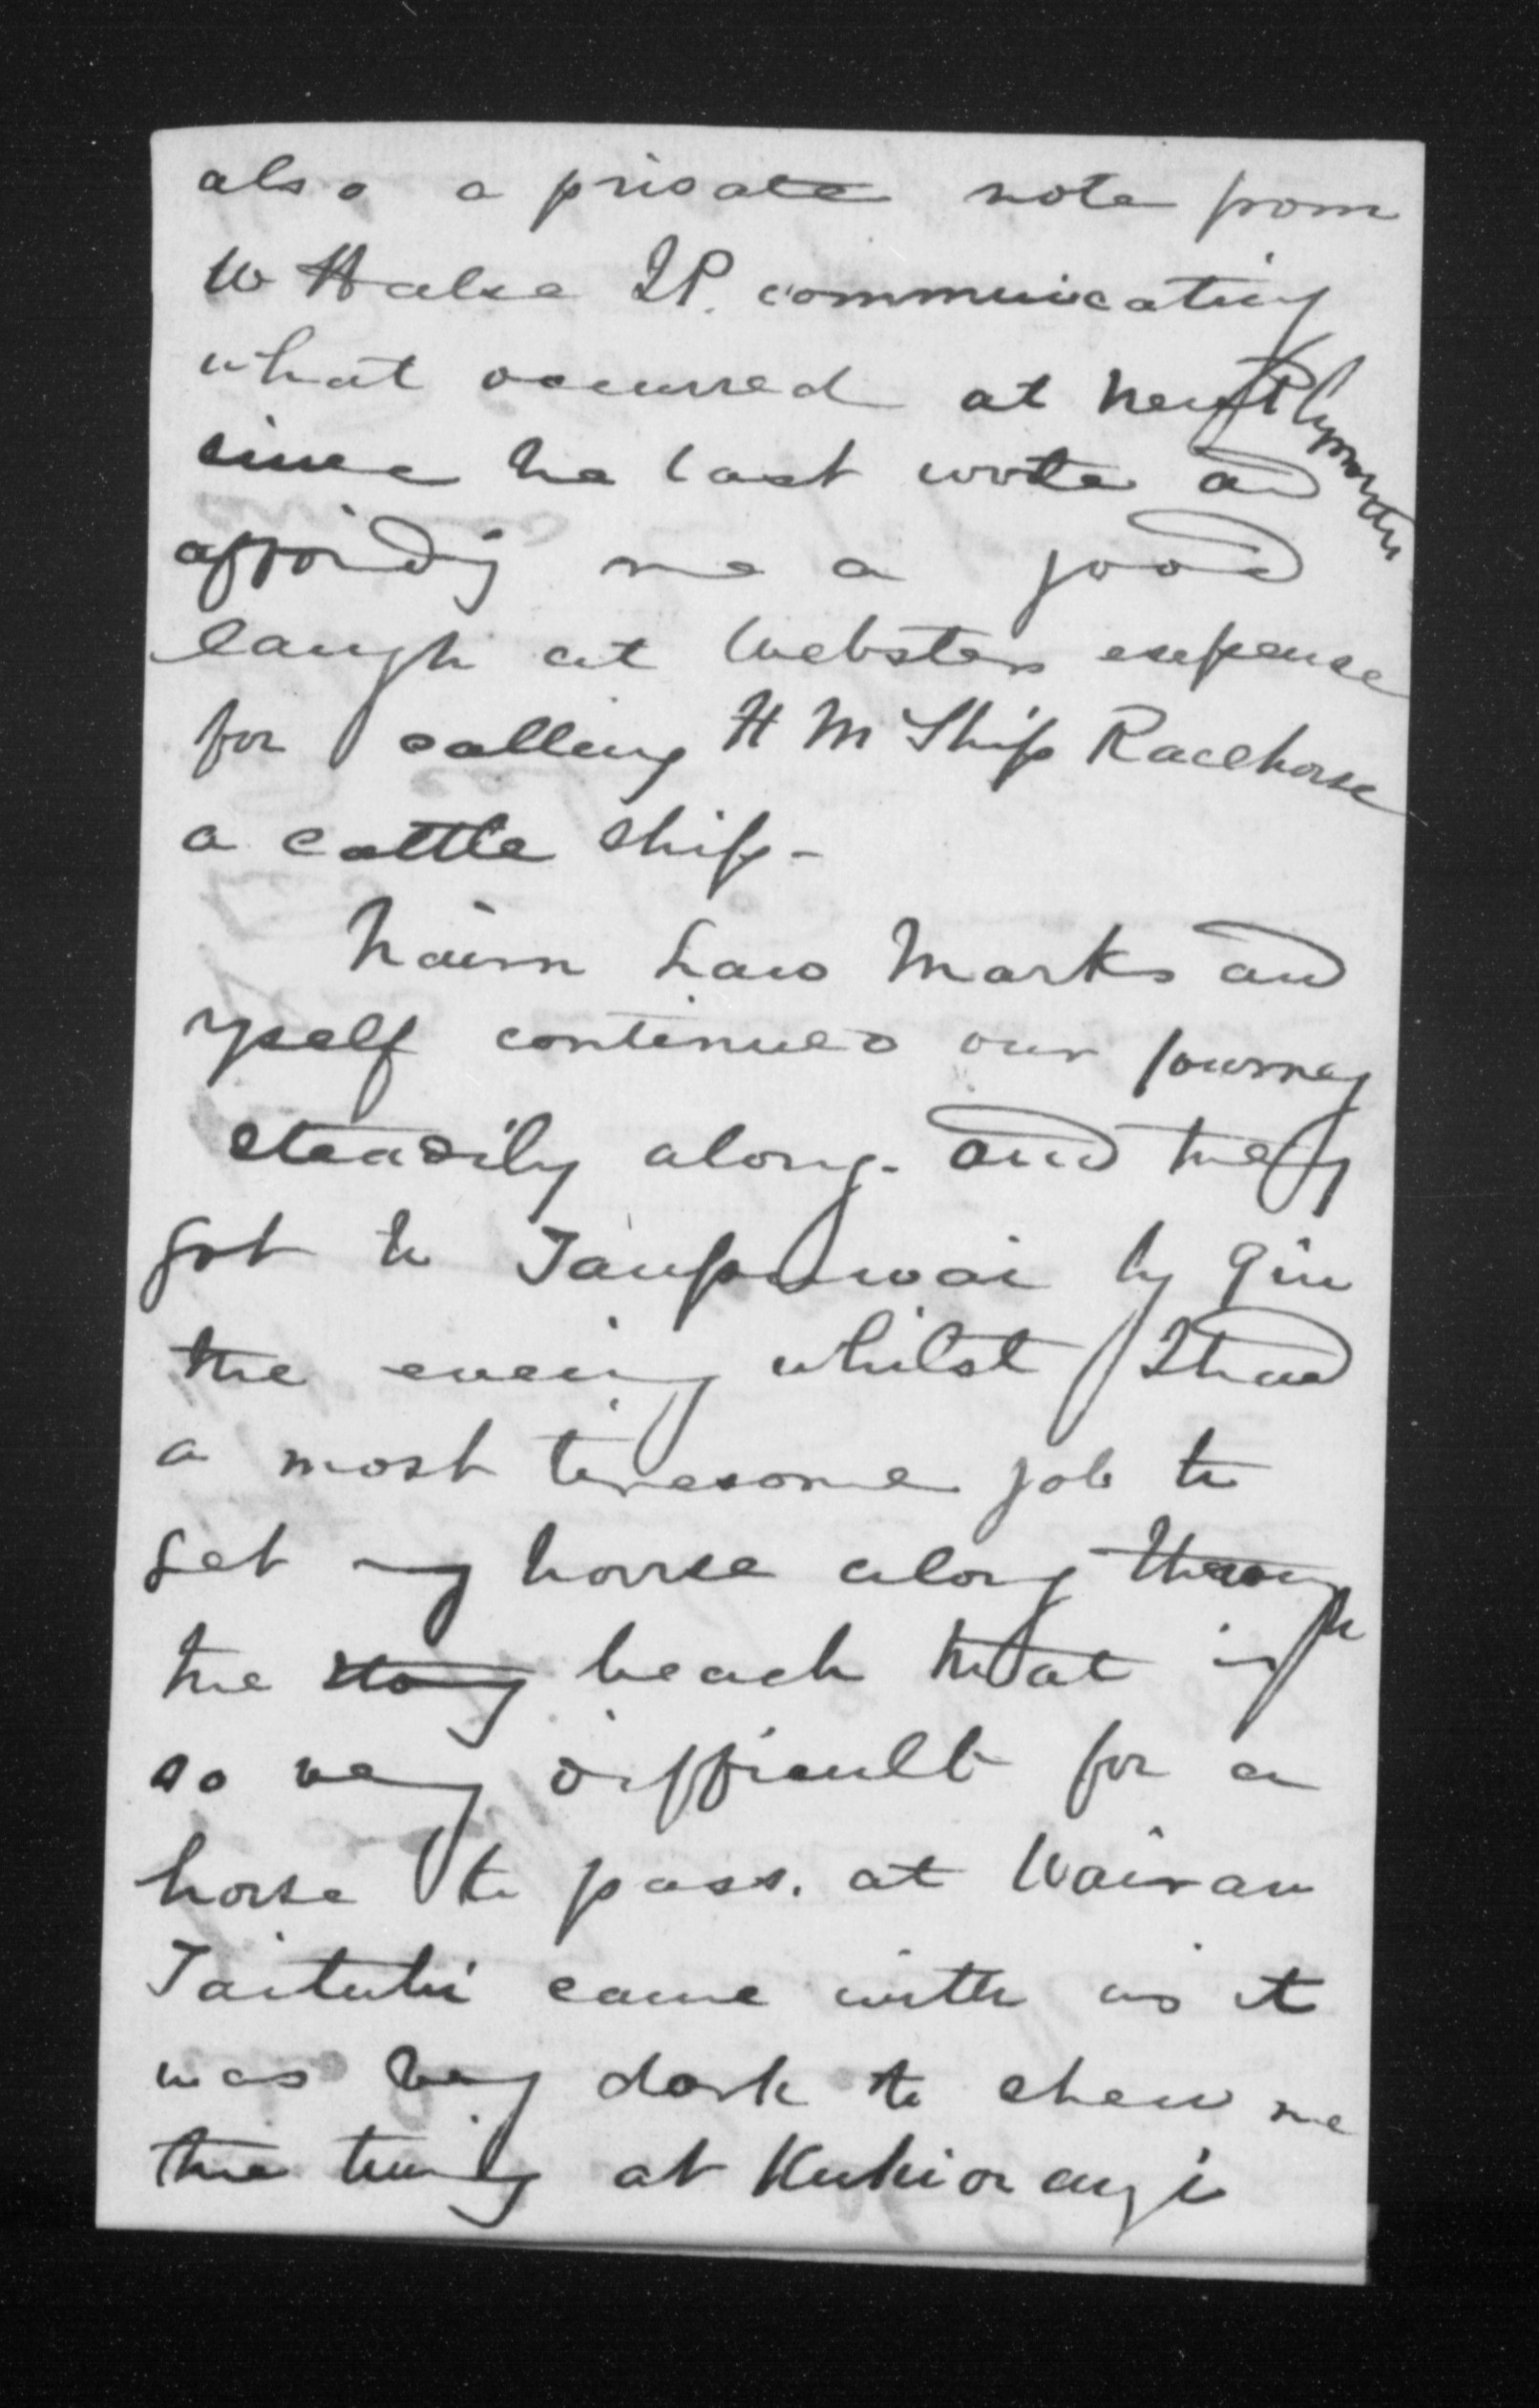 also a private note from
W Halse JP. communicating
what occurred at New Plymouth
since he last wrote and
affording me a good
laugh at Websters expense
for calling H M Ship Racehorse
a cattle ship -
Nairn Law Marks and
myself continued our journey
steadily along. and they
got to by 9 in
the evening whilst I had
a most tiresome job to
get my horse along through
the stony beach that is
so very difficult for a
horse to pass. at Wairau
Taituhi came with us it
was very dark to shew me
the turning at Kukiorangi